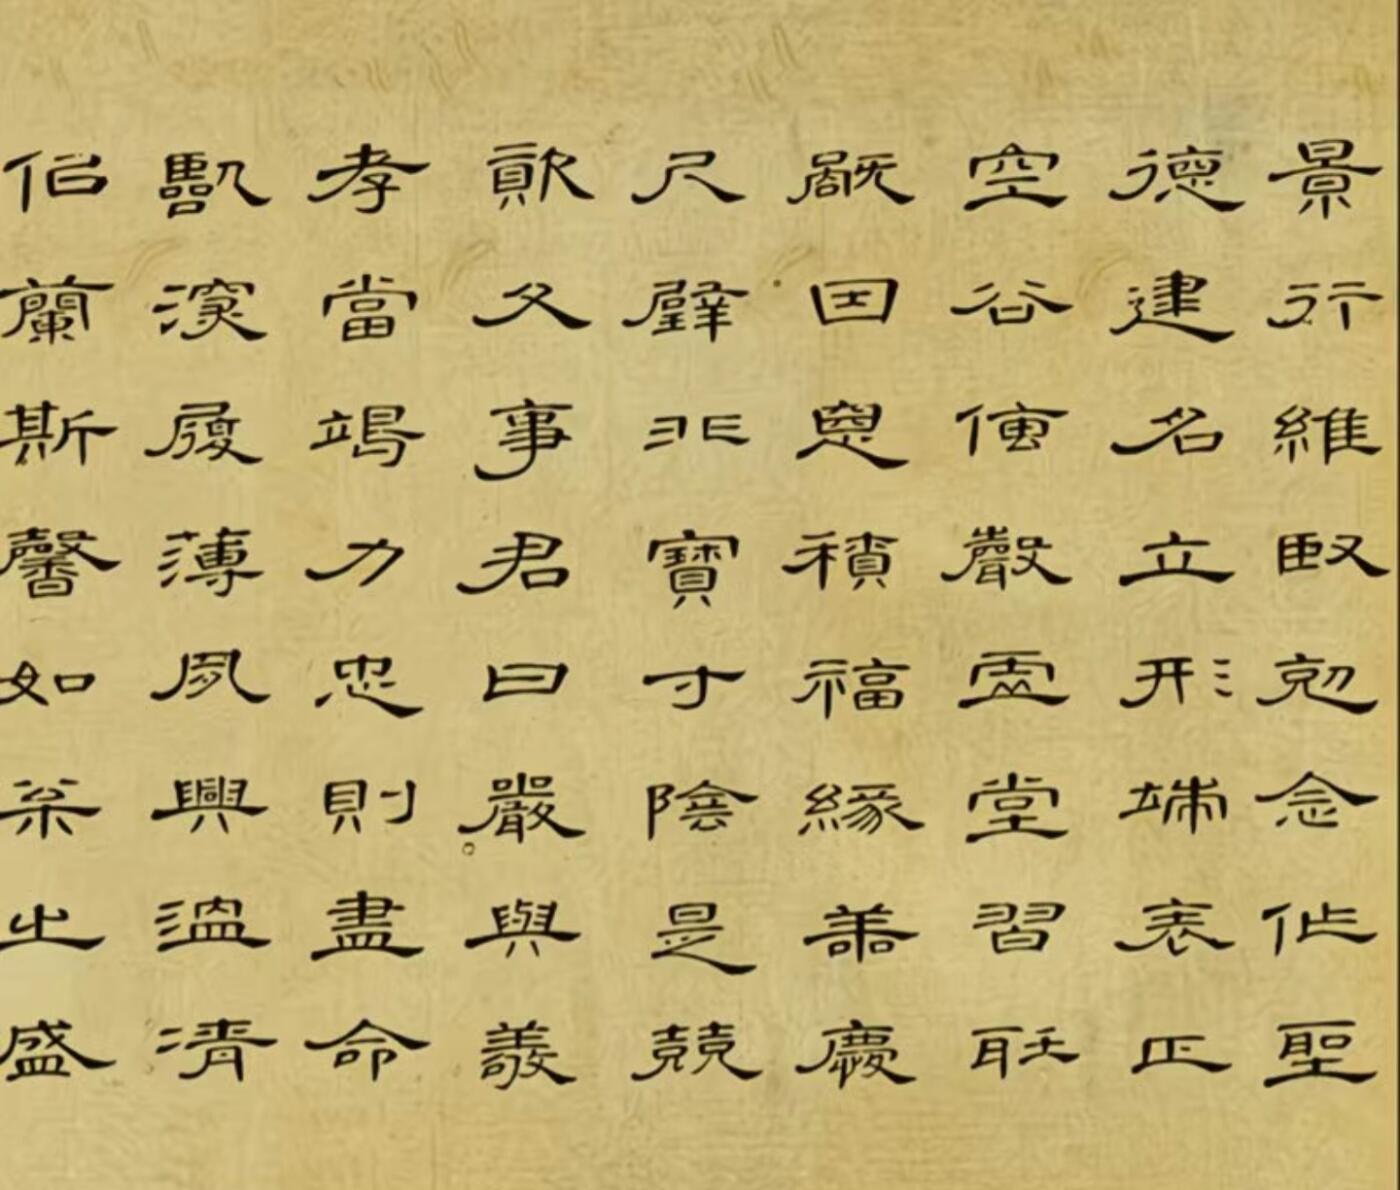 景行維臤剋念作聖
德建名立形端表正
空谷傳聲虛堂習聽
禍因惡積福緣善慶
尺璧非寶寸陰是競
資父事君曰嚴與敬
孝當竭力忠則盡命
臨深履薄夙興溫凊
佀蘭斯馨如松之盛